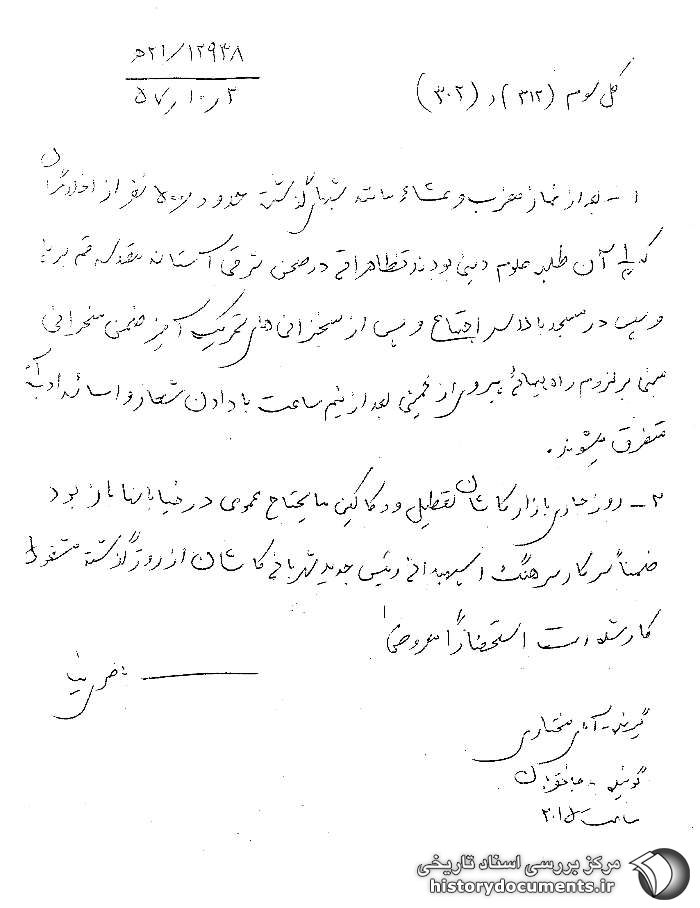 ۲۱/۱۲۹۳۸ه‍
۵۷/۱۰/۳
کل سوم (۳۱۲) و (۳۰۲)
۱- بعد از نماز مغرب و عشاء مانند شبهای گذشته حدود نفر از اخلالگران
که آن طلبه علوم دینی بودند تظاهراتی در صحن شرقی آستانه مقدسه قم برپا
و سپس در مسجد بالاسر اجتماع و پس از سخنرانی های تحریک آمیز ضمنی سخنرانی
مبنی بر لزوم راه پیمائی پیروی از خمینی بعد از نیم ساعت با دادن شعار و اسائه ادب
متفرق میشوند.
۲- روز جاری بازار کاشان تعطیل و دکاکین مایحتاج عمومی در خیابانها باز بود
ضمناً سرکار سرهنگ اسپهبدانی رئیس جدید شهربانی کاشان از روز گذشته مشغول
کار شده است استحضاراً معروض
گیرنده- آقای مختاری
گوینده- جانقربان
ساعت
مرکز بررسی اسناد تاریخی
historydocuments.ir